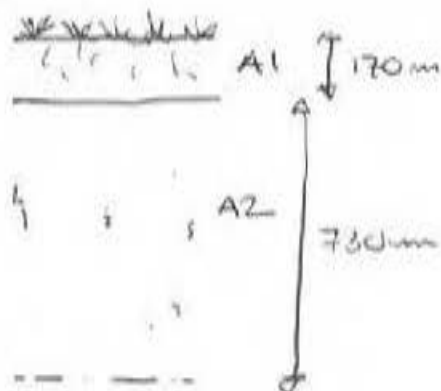 A1 170 m
A2
730 mm